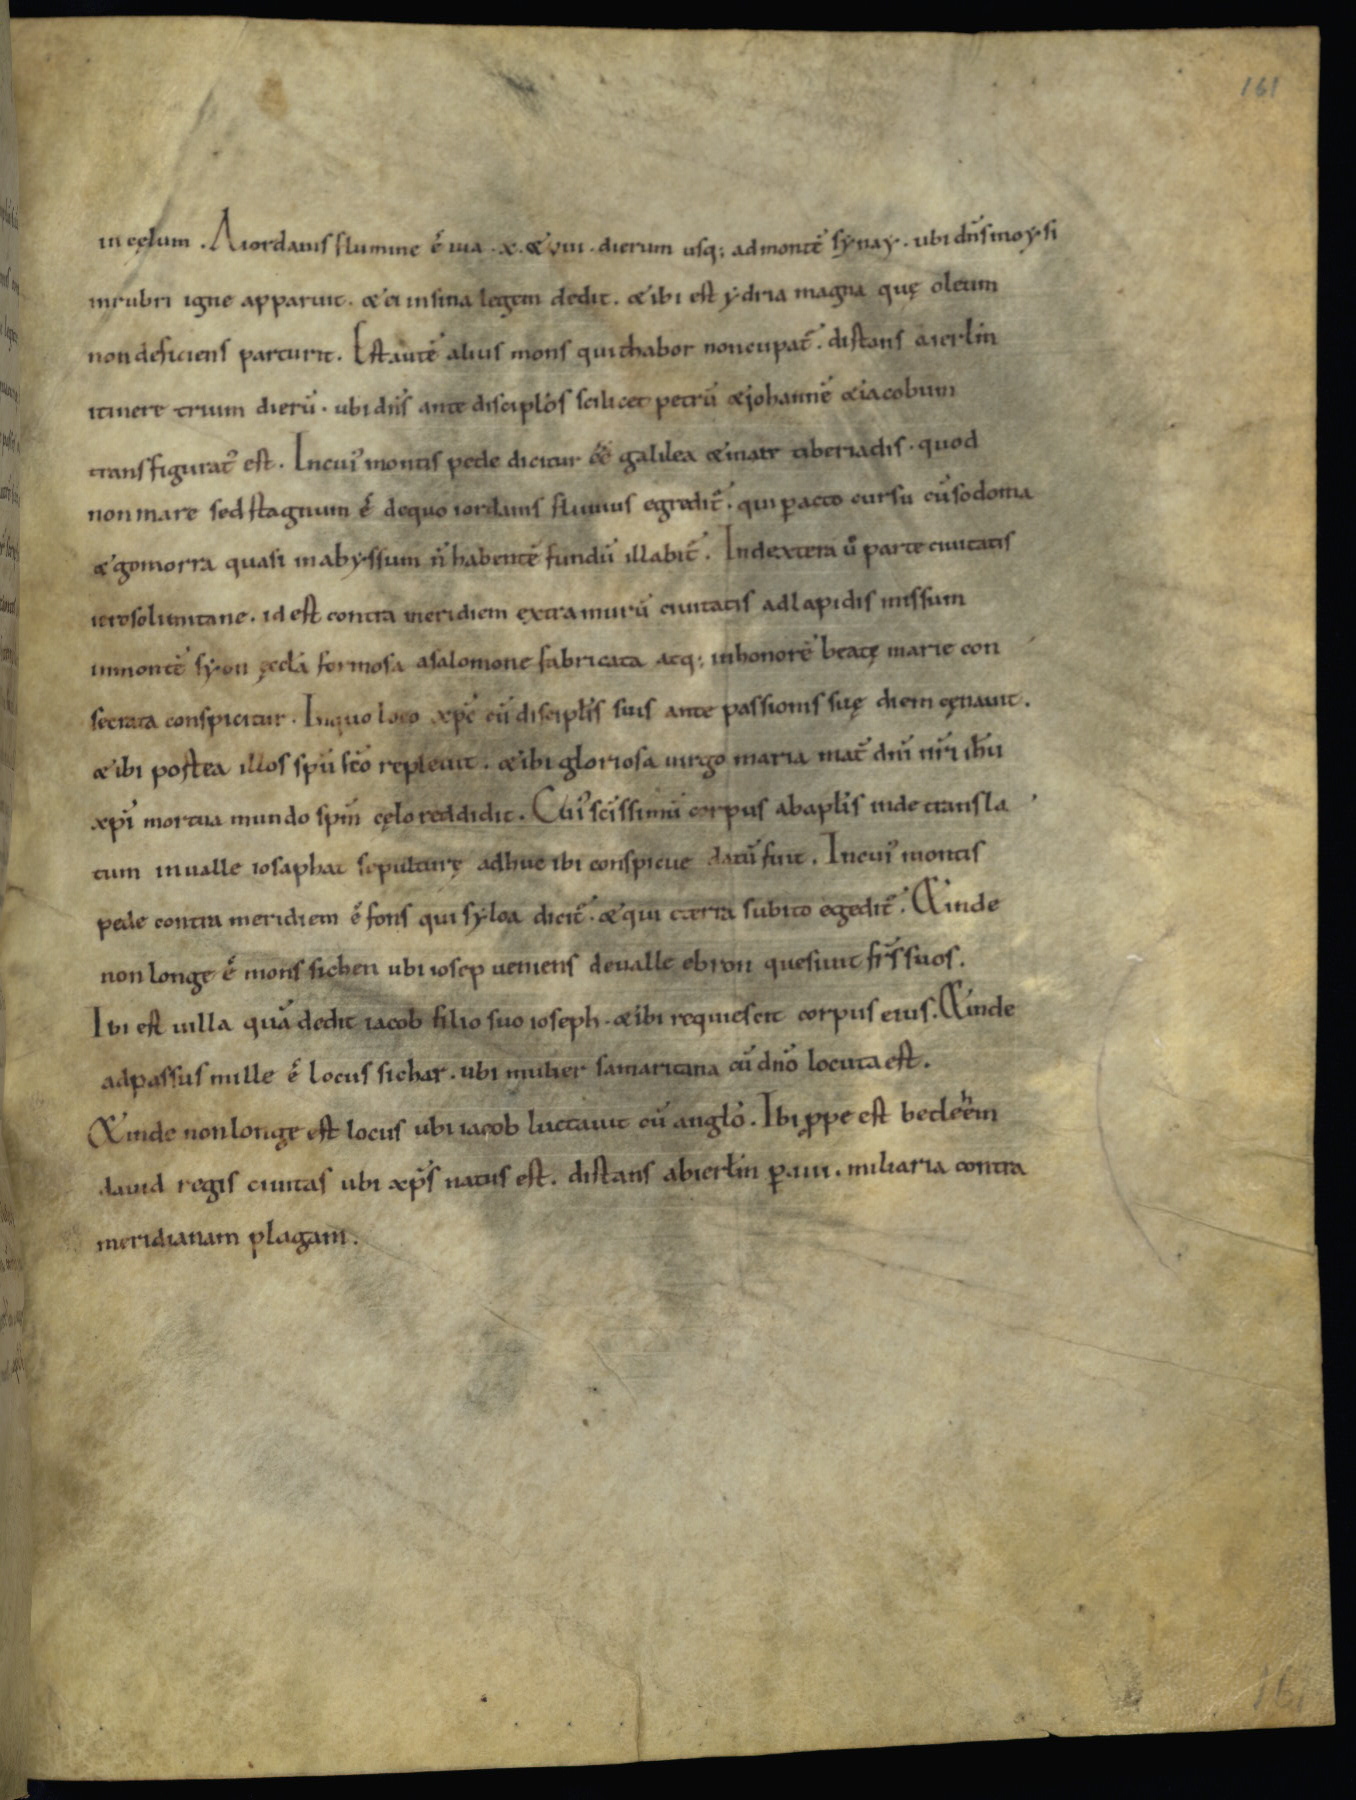 161
in cęlum . A iordanis flumine ē uia . x . & viii . dierum usq; ad montē sẏnaẏ . ubi dn̄s moẏsi
in rubri igne apparuit . & ei in sina legem dedit . & ibi est ẏdria magna quę oleum
non deficiens parturit . Est autē alius mons qui thabor noncupat̄ . distans a ierl̄m
itinere trium dierū . ubi dn̄s ante discipl̄os scilicet petrū & johannē & iacobum
transfigurat᾽ est . In cui᾽ montis pede dicitur galilea & mare tiberiadis . quod
non mare sed stagnum ē de quo iordanis fluuius egredit̄ . qui pacto cursu cū sodoma
& gomorra quasi in abẏssum n̄ habentē fundū illabit̄ . In dextera ů parte ciuitatis
ierosolimitane . id est contra meridiem extra murū ciuitatis ad lapidis missum
in montē sẏon ęccl̄a formosa a salomone fabricata atq; in honorē beatę marie con
secrata conspicitur . In quo loco xp̄c cū discipl̄is suis ante passionis suę diem cęnauit .
& ibi postea illos sp̄u sc̄o repleuit . & ibi gloriosa uirgo maria mat̄ dn̄i nr̄i ih̄u
xp̄i mortua mundo sp̄m cęlo reddidit . Cui᾽ sc̄issimū corpus ab apl̄is inde transla
tum in ualle iosaphat sepulturę adhuc ibi conspicue datū fuit . In cui᾽ montis
pede contra meridiem ē fons qui sẏloa dicit̄ . & qui e terra subito egedit̄ . Exinde
non longe ē mons sichen ubi iosep ueniens de ualle ebron quesiuit fr̄s suos .
Ibi est uilla quā dedit iacob filio suo ioseph . & ibi requiescit corpus eius . Exinde
ad passus mille ē locus sichar . ubi mulier samaritana cū dn̄o locuta est .
Exinde non longe est locus ubi iacob luctauit cū angl̄o . Ibi ꝓpe est betleēm
dauid regis ciuitas ubi xp̄s natus est . distans ab ierl̄m ꝑ iiii . miliaria contra
meridianam plagam .
161